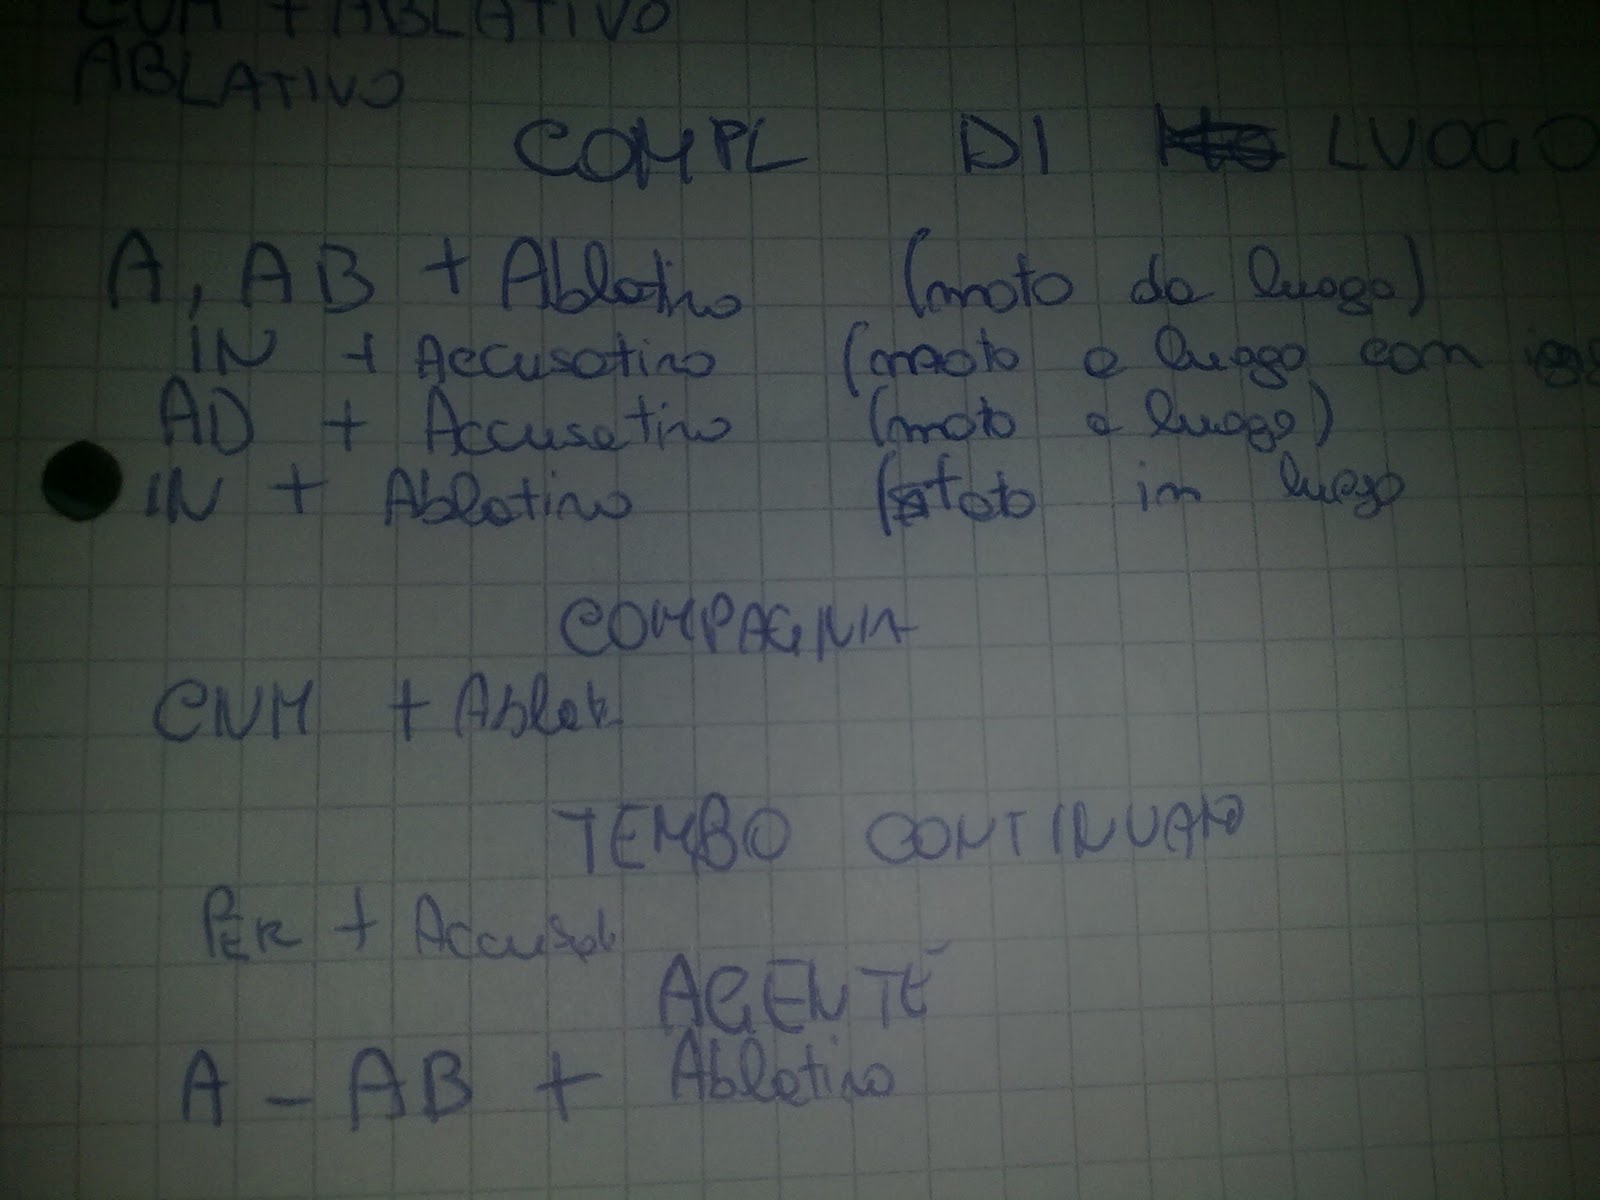 CUM + ABLATIVO
ABLATIVO
COMPL DI LUOGO
A, AB + Ablativo (moto da luogo)
IN + Accusativo (moto a luogo com
AD + Accusativo (moto a luogo)
IN + Ablativo (stato in luogo
COMPAGNIA
CUM + Ablat.
TEMBO CONTINUATO
PER + Accusat
AGENTE
A - AB + Ablativo